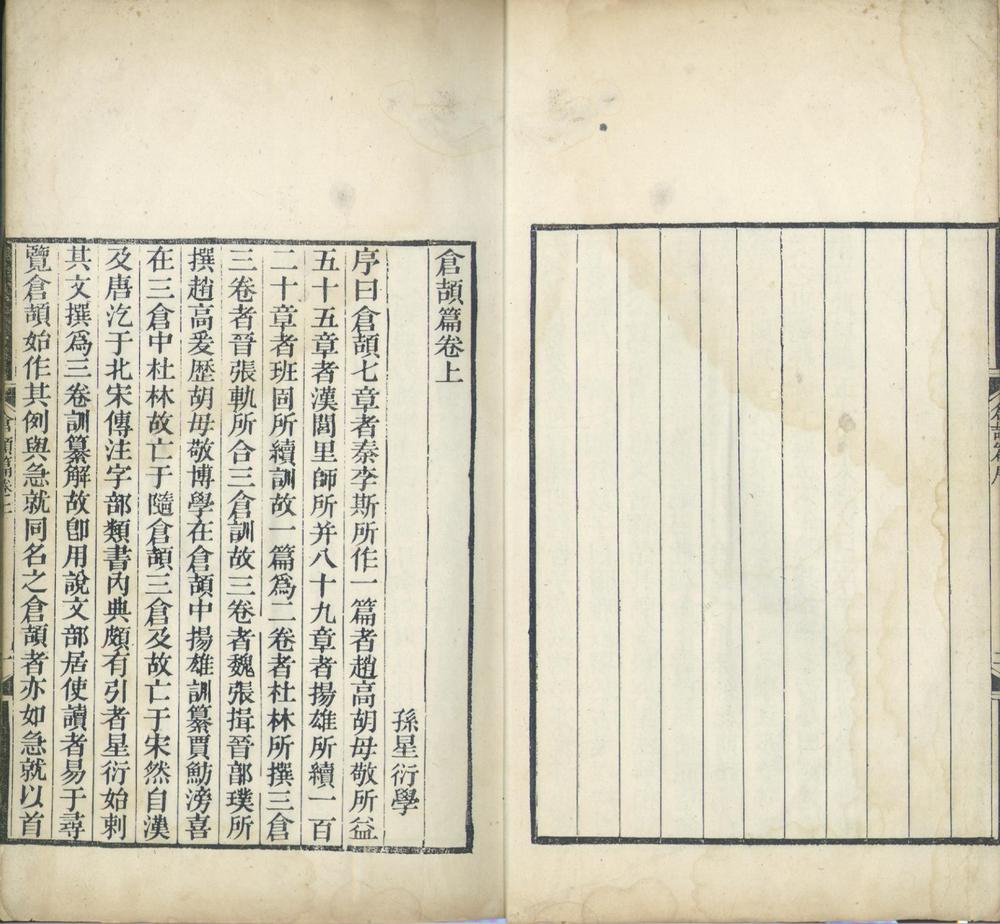 倉頡篇卷上
孫星衍學
序曰倉頡七章者秦李斯所作一篇者趙高胡毋敬所益
五十五章者漢閭里師所并八十九章者揚雄所續一百
二十章者班固所續訓故一篇爲二卷者杜林所撰三倉
三卷者晉張軌所合三倉訓故三卷者魏張揖晉郭璞所
撰趙高爰歷胡毋敬博學在倉頡中揚雄訓纂賈魴滂喜
在三倉中杜林故亡于隨倉頡三倉及故亡于宋然自漢
及唐汔于北宋傳注字部類書內典頗有引者星衍始刺
其文撰爲三卷訓纂解故卽用說文部居使讀者易于尋
覽倉頡始作其例與急就同名之倉頡者亦如急就以首
倉頡篇卷上